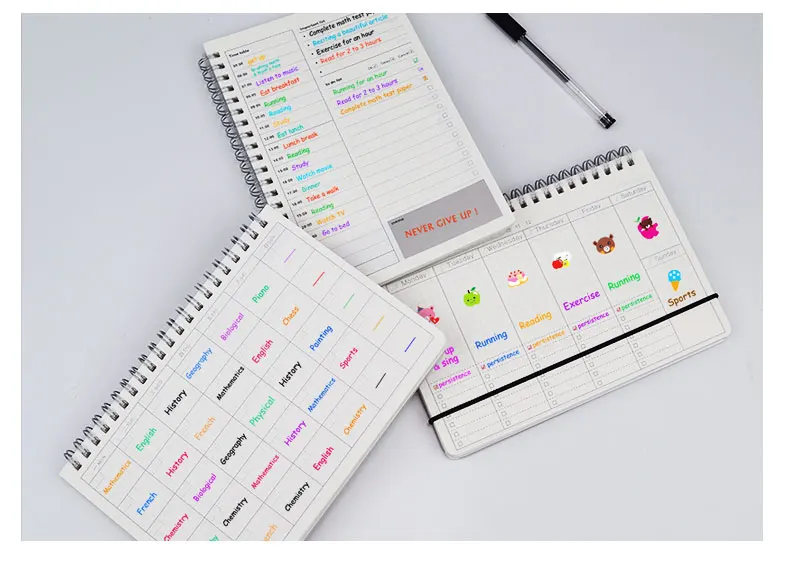 Important list
Complete math test paper
Reciting a beautiful article
Exercise for an hour
Read for 2 to 3 hours
Time table
Listen to music
Eat breakfast
Running
Reading
Study
Eat lunch
Lunch break
Reading
Study
Watch movie
Dinner
Take a walk
Reading
Watch TV
Go to bed
to do list
Running for an hour
Read for 2 to 3 hours
Complete math test paper
NEVER GIVE UP !
Monday
Tuesday
Wednesday
Thursday
Friday
Saturday
Sunday
up
& sing
Running
Reading
Exercise
Running
Sports
persistence
persistence
persistence
persistence
persistence
Mathematics
English
History
Geography
Biological
Piano
French
History
French
Mathematics
English
Chess
Chemistry
Biological
Geography
Physical
History
Painting
Chemistry
Mathematics
History
Mathematics
Sports
Chemistry
English
Chemistry